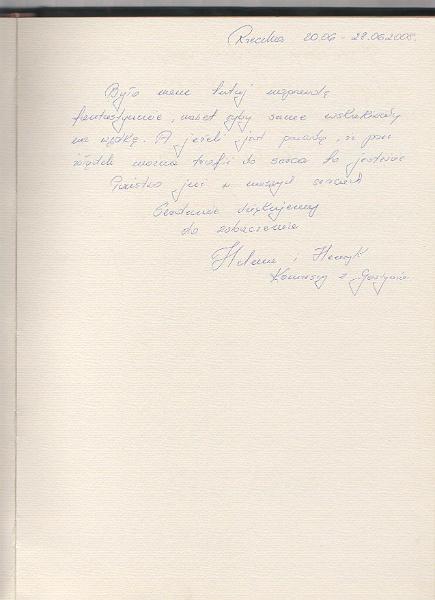 Rzeczka 20.06 - 28.06.2008.
Było nam tutaj naprawdę
fantastycznie, nawet ryby same wskakiwały
na wędkę. A jeżeli jest prawdą, że przez
żołądek można trafić do serca to jesteście
Państwo już w naszych sercach
Serdecznie dziękujemy
do zobaczenia
Helena i Henryk
z Gostynia